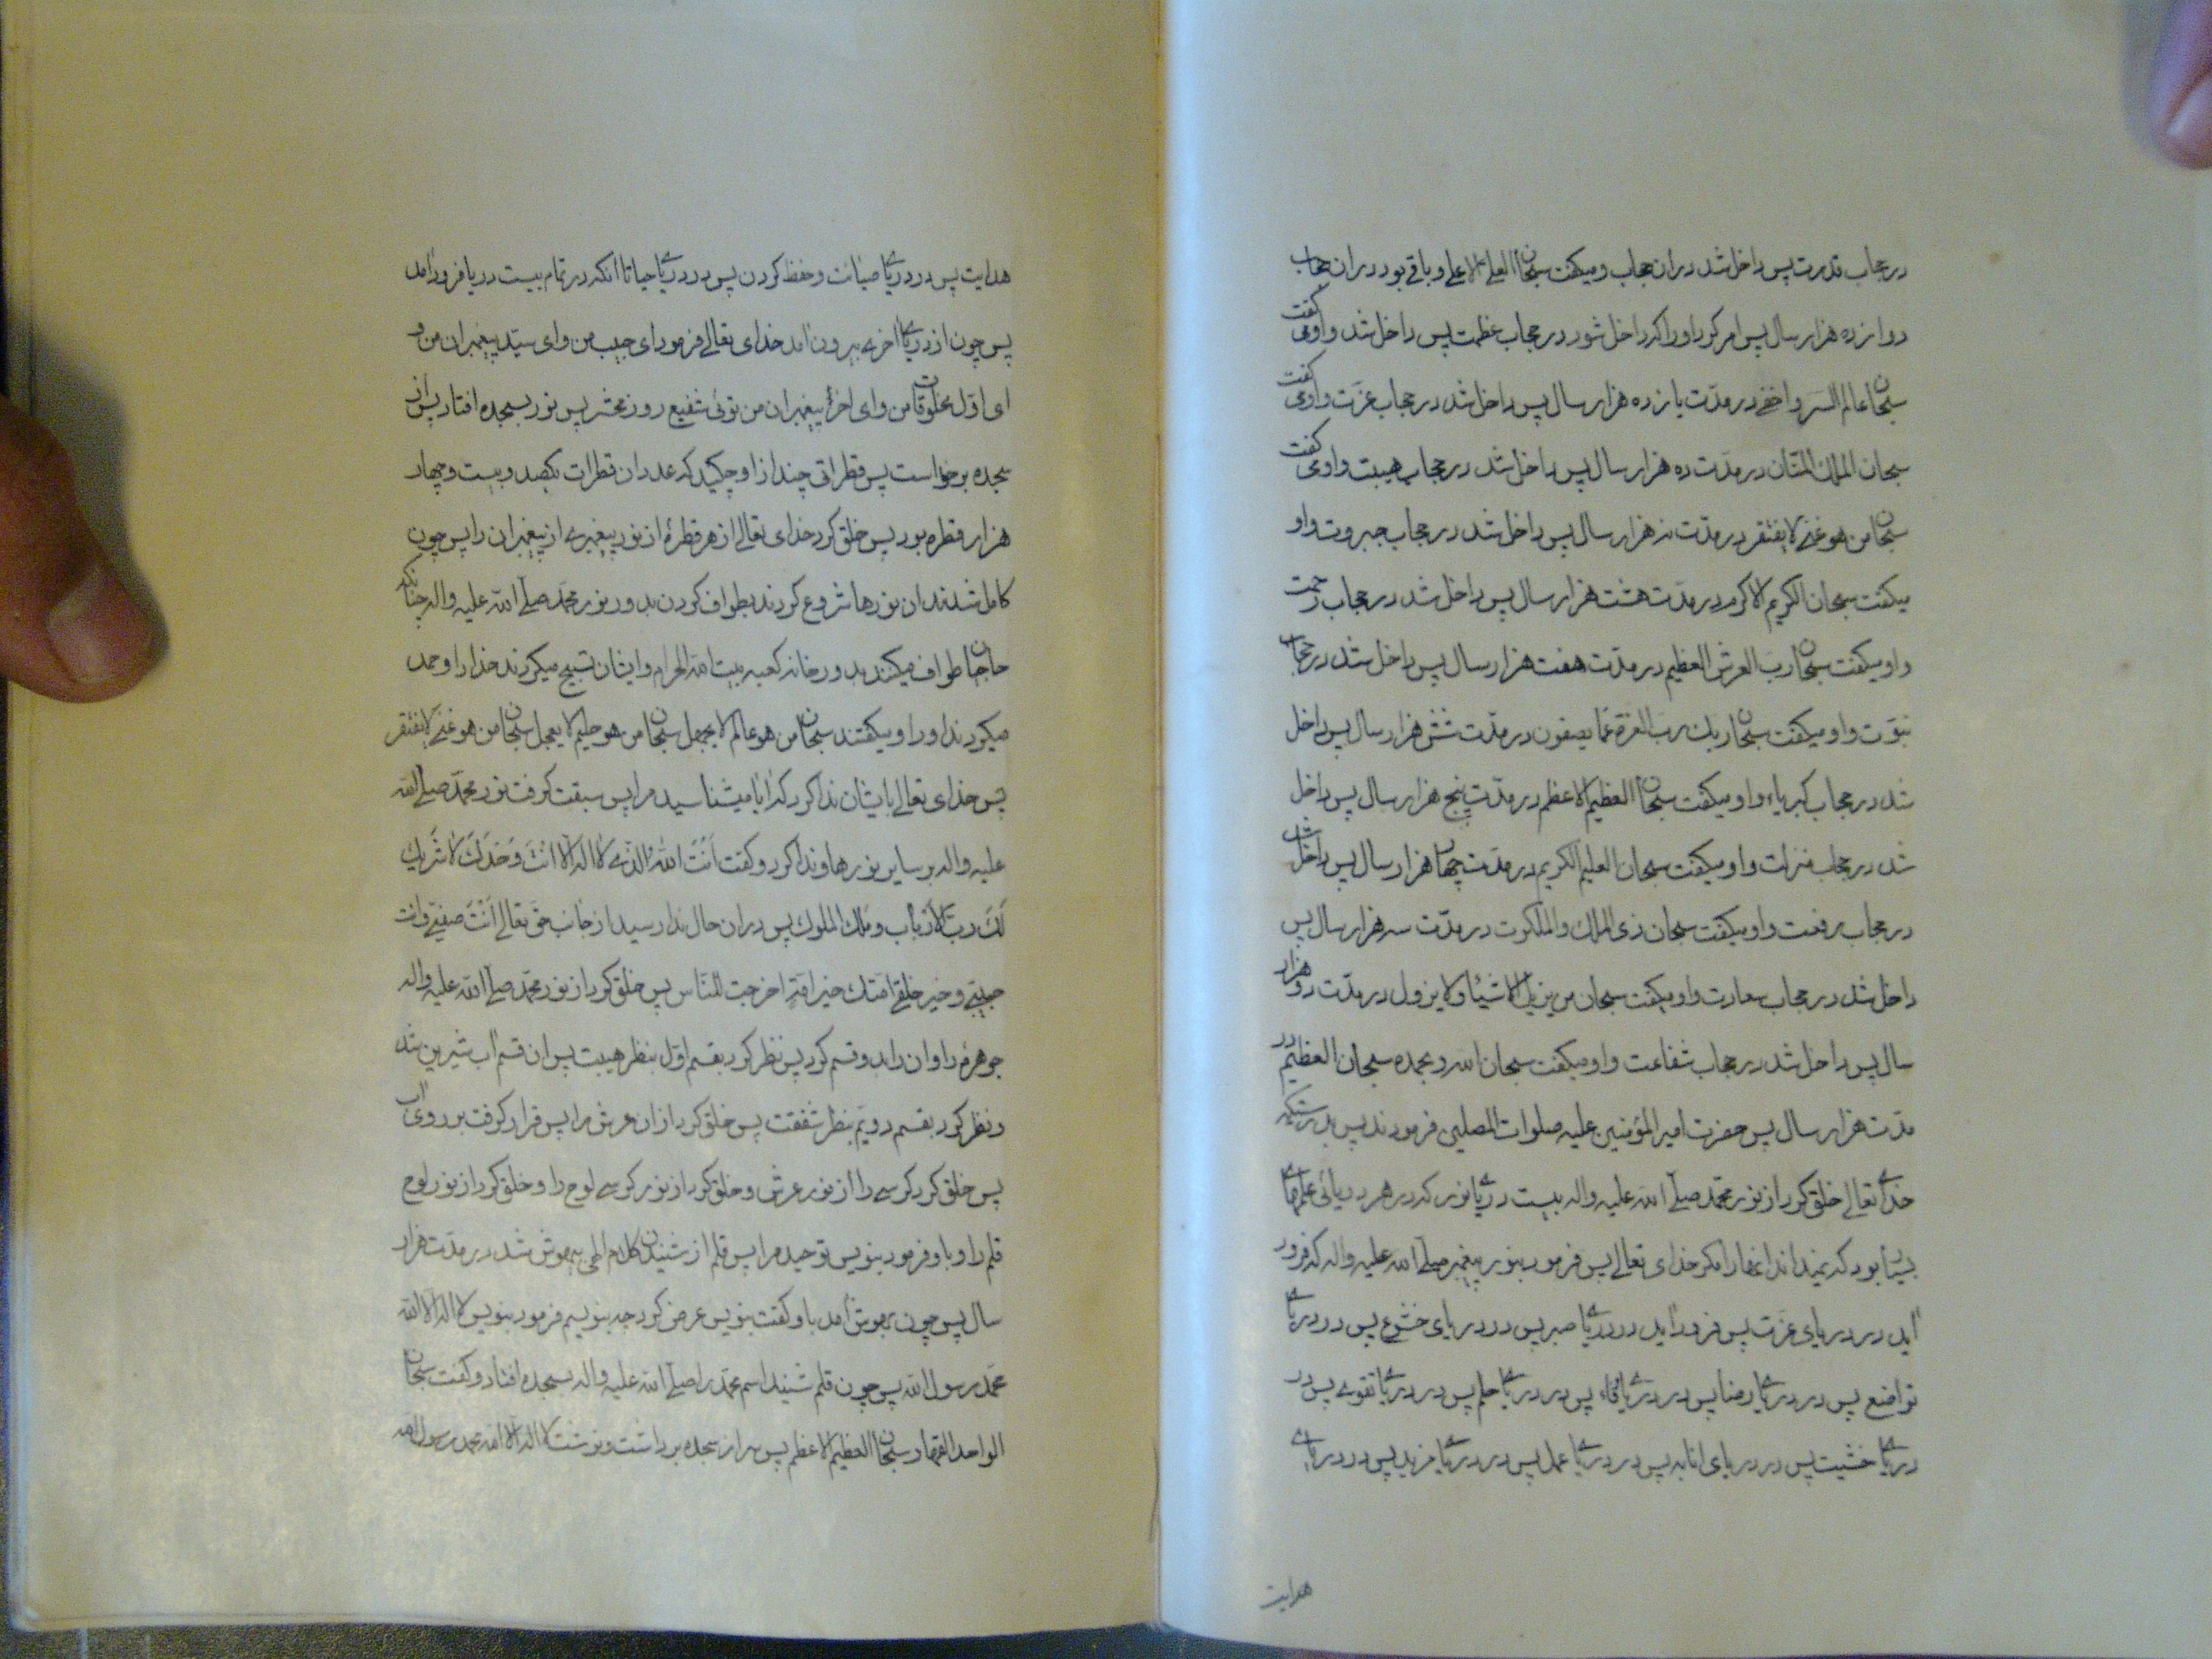 در حجاب قدرت پس داخل شد در ان حجاب و میکفت سبحان العلی الاعلی و باقی بود در ان حجاب
دوازده هزار سال پس امر کرد او را که داخل شود در حجاب عظمت پس داخل شد و او می کفت
سبحان عالم السر و اخفی در مدّت یازده هزار سال پس داخل شد در حجاب عزّت و او می کفت
سبحان الملك المنّان در مدّت ده هزار سال پس داخل شد در حجاب هیبت و او می کفت
سبحان من هو غنی لا یفتقر در مدّت نه هزار سال پس داخل شد در حجاب جبروت و او
میکفت سبحان الکریم الاکرم در مدّت هشت هزار سال پس داخل شد در حجاب رحمت
و او میکفت سبحان ربّ العرش العظیم در مدّت هفت هزار سال پس داخل شد در حجاب
نبوّت و او میکفت سبحان ربك ربّ العزّة عمّا یصفون در مدّت شش هزار سال پس داخل
شد در حجاب کبریاء و او میکفت سبحان العظیم الاعظم در مدّت پنج هزار سال پس داخل
شد در حجاب منزلت و او میکفت سبحان العلیم الکریم در مدّت چهار هزار سال پس داخل شد
در حجاب رفعت و او میکفت سبحان ذی الملك والملکوت در مدّت سه هزار سال پس
داخل شد در حجاب سعادت و او میکفت سبحان من یزیل الاشیاء ولا یزول در مدّت دو هزار
سال پس داخل شد در حجاب شفاعت و او میکفت سبحان الله و بحمده سبحان العظیم در
مدّت هزار سال پس حضرت امیر المؤمنین علیه صلوات المصلین فرمودند پس بدرستیکه
خدای تعالی خلق کرد از نور محمّد صلی الله علیه و اله بیست دریا نور که در هر دریائی علمهای
بسیا بود که نمیداند انها را مکر خدای تعالی پس فرمود بنور پیغمبر صلی الله علیه و اله که فرود
آید در دریای عزّت پس فرود اید در دریای صبر پس در دریای خشوع پس در دریای
تواضع پس در دریای رضا پس در دریای وفاء پس در دریای حلم پس در دریای تقوی پس در
دریای خشیت پس در دریای انابه پس در دریای عمل پس در دریای مزید پس در دریای
هدایت
هدایت پس در دریای صیانت و حفظ کردن پس در دریای حیا تا انکه در تمام بیست دریا فرود امد
پس چون از دریای اخری بیرون امد خدای تعالی فرمود ای حبیب من و ای سیّد پیغمبران من و
ای اوّل مخلوقات من و ای اخر پیغمبران من توئی شفیع روز محشر پس نور بسجده افتاد پس از ان
سجده برخواست پس قطراتی چند از او چکید که عدد ان قطرات یکصد و بیست و چهار
هزار قطره بود پس خلق کرد خدای تعالی از هر قطرۀ از نور پیغمبری از پیغمبران را پس چون
کامل شدند ان نورها شروع کردند بطواف کردن بدور نور محمّد صلی الله علیه و اله چنانکه
حاجیان طواف میکنند بدور خانه کعبه بیت الله الحرام و ایشان تسبیح میکردند خدا را و حمد
میکردند او را و میکفتند سبحان من هو عالم لا یجهل سبحان من هو حلیم لا یعجل سبحان من هو غنی لا یفتقر
پس خدای تعالی بایشان ندا کرد که ایا میشناسید مرا پس سبقت کرفت نور محمّد صلی الله
علیه و اله بر سایر نورها و ندا کرد و کفت اَنْتَ اللهُ الَّذی لا اله الّا انْتَ وَحْدَكَ لا شَریك
لَكَ ربّ الاَرْباب و ملك الملوك پس در ان حال ندا رسید از جانب حق تعالی اَنْتَ صفیّی وانت
حبیبی و خیر خلقی امّتك خیر امّةٍ اخرجت للنّاس پس خلق کرد از نور محمّد صلی الله علیه و اله
جوهرۀ را و ان را بدو قسم کرد پس نظر کرد بقسم اوّل بنظر هیبت پس ان قسم اب شیرین شد
و نظر کرد بقسم دویّم بنظر شفقت پس خلق کرد از ان عرش مرا پس قرار کرفت بر روی اب
پس خلق کرد کرسی را از نور عرش و خلق کرد از نور کرسی لوح را و خلق کرد از نور لوح
قلم را و باو فرمود بنویس توحید مرا پس قلم از شنیدن کلام الهی بیهوش شد در مدّت هزار
سال پس چون بهوش آمد باو کفت بنویس عرض کرد چه بنویسم فرمود بنویس لا اله الّا الله
محمّد رسول الله پس چون قلم شنید اسم محمّد را صلی الله علیه و اله بسجده افتاد و کفت سبحان
الواحد القهّار سبحان العظیم الاعظم پس سر از سجده برداشت و نوشت لا اله الّا الله محمد رسول الله